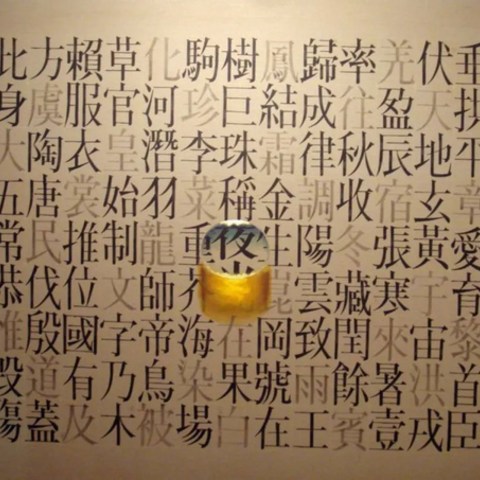 垂拱平章愛育黎首臣
伏天地玄黃宇宙洪戎
羌盈辰宿張寒來暑壹
率往秋收冬藏閏餘賓
歸成律調陽雲致雨王
鳳結霜金生崑岡號在
樹巨珠稱夜光在果白
駒珍李菜重芥海染場
化河潛羽龍師帝鳥被
草官皇始制文字乃木
賴服衣裳推位國有及
方虞陶唐民伐殷道蓋
此身大五常恭惟毀傷